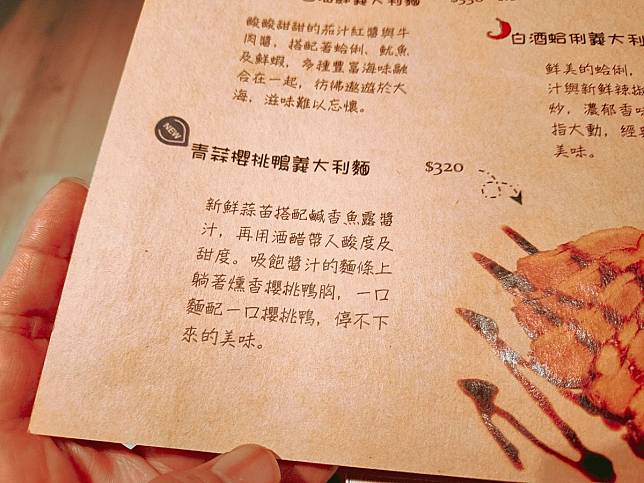 海鮮義大利麵 $330
酸酸甜甜的茄汁紅醬與牛
肉醬，搭配著蛤俐、魷魚
及鮮蝦，多種豐富海味融
合在一起，彷彿遨遊於大
海，滋味難以忘懷。
白酒蛤俐義大利
鮮美的蛤俐，
汁與新鮮辣
炒，濃郁香味
指大動，經
美味。
NEW
青蒜櫻桃鴨義大利麵 $320
新鮮蒜苗搭配鹹香魚露醬
汁，再用酒醋帶入酸度及
甜度。吸飽醬汁的麵條上
躺著燻香櫻桃鴨胸，一口
麵配一口櫻桃鴨，停不下
來的美味。